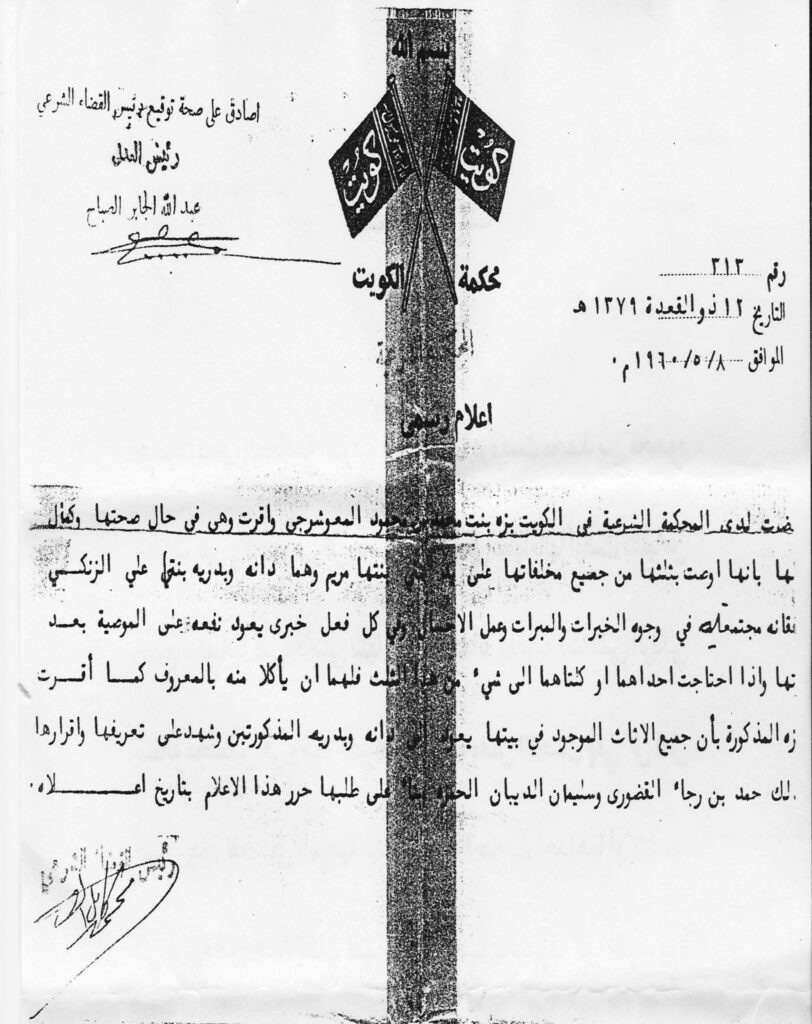 بسم الله
كويت
كويت
اصادق على صحة توقيع رئيس القضاء الشرعي
رئيس العدل
عبد الله الجابر الصباح
محكمة الكويت
رقم ٣١٣
التاريخ ١٢ ذو القعدة ١٣٧٩ هـ
الموافق ١٩٦٠/٥/٨ م٠
المحكمة الشرعية
اعلام رسمى
ضت لدى المحكمة الشرعية فى الكويت بزه بنت محمد بن محمود المعوشرجى واقرت وهى فى حال صحتها وكمال
لها بانها اوصت بثلثها من جميع مخلفاتها على يد بنتها مريم وهما دانه وبدريه بنتي علي الزنكـــي
فقانه في وجوه الخيرات والمبرات وعمل الاحسان وفي كل فعل خيرى يعود نفعه على الموصية بعــد
تها واذا احتاجت احداهما او كلتاهما الى شيء من هذا الثلث فلهما ان يأكلا منه بالمعروف كمــا أقــرت
زه المذكورة بأن جميع الاثاث الموجود في بيتها يعود إلى دانه وبدريه المذكورتين وشهد على تعريفها واقرارها
لك حمد بن رجاء القضورى وسليمان الديبان بناء على طلبها حرر هذا الاعلام بتاريخ اعــــــــلاه٠
رئيس القضاء الشرعي